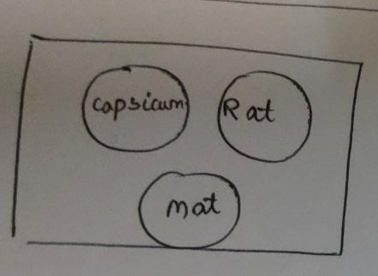 Capsicum
Rat
Mat